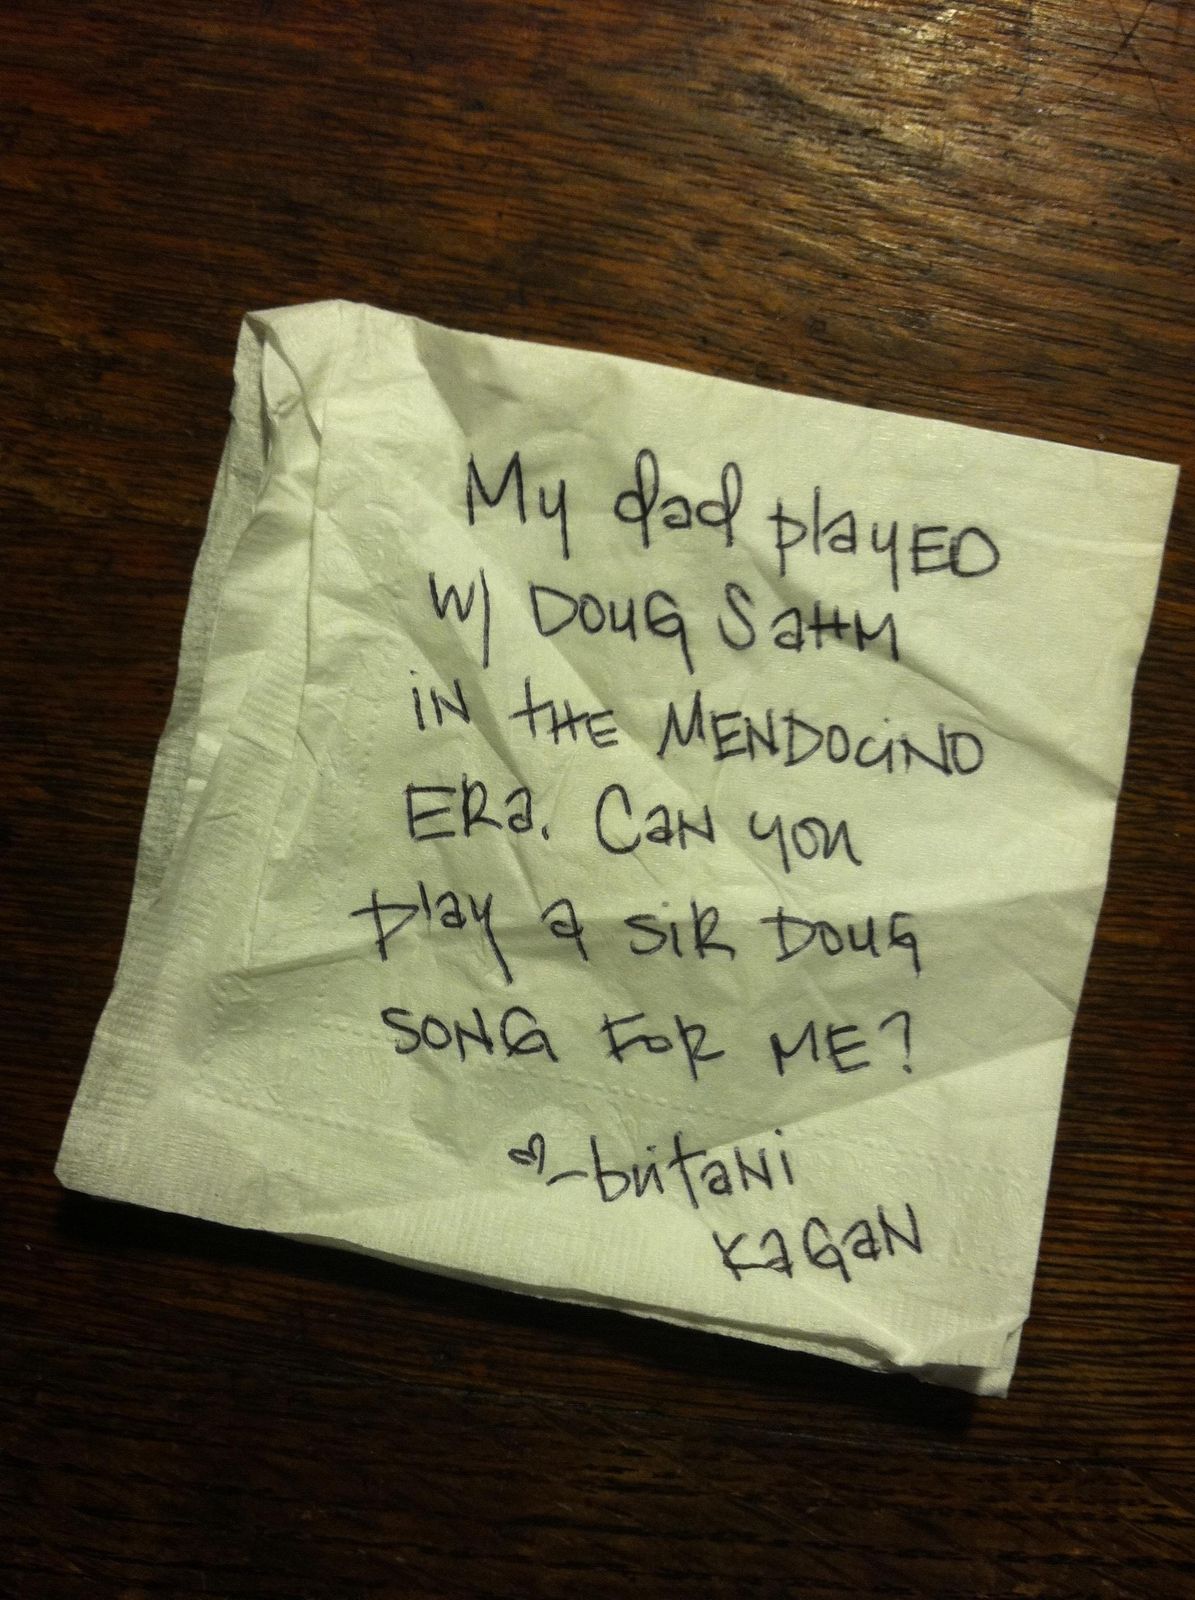 My dad playED
W/ DOUG SaHM
iN tHE MENDOCiNO
ERa. CaN you
play a siR DOUG
SONG FOR ME?
♡-britaNi
KaGaN